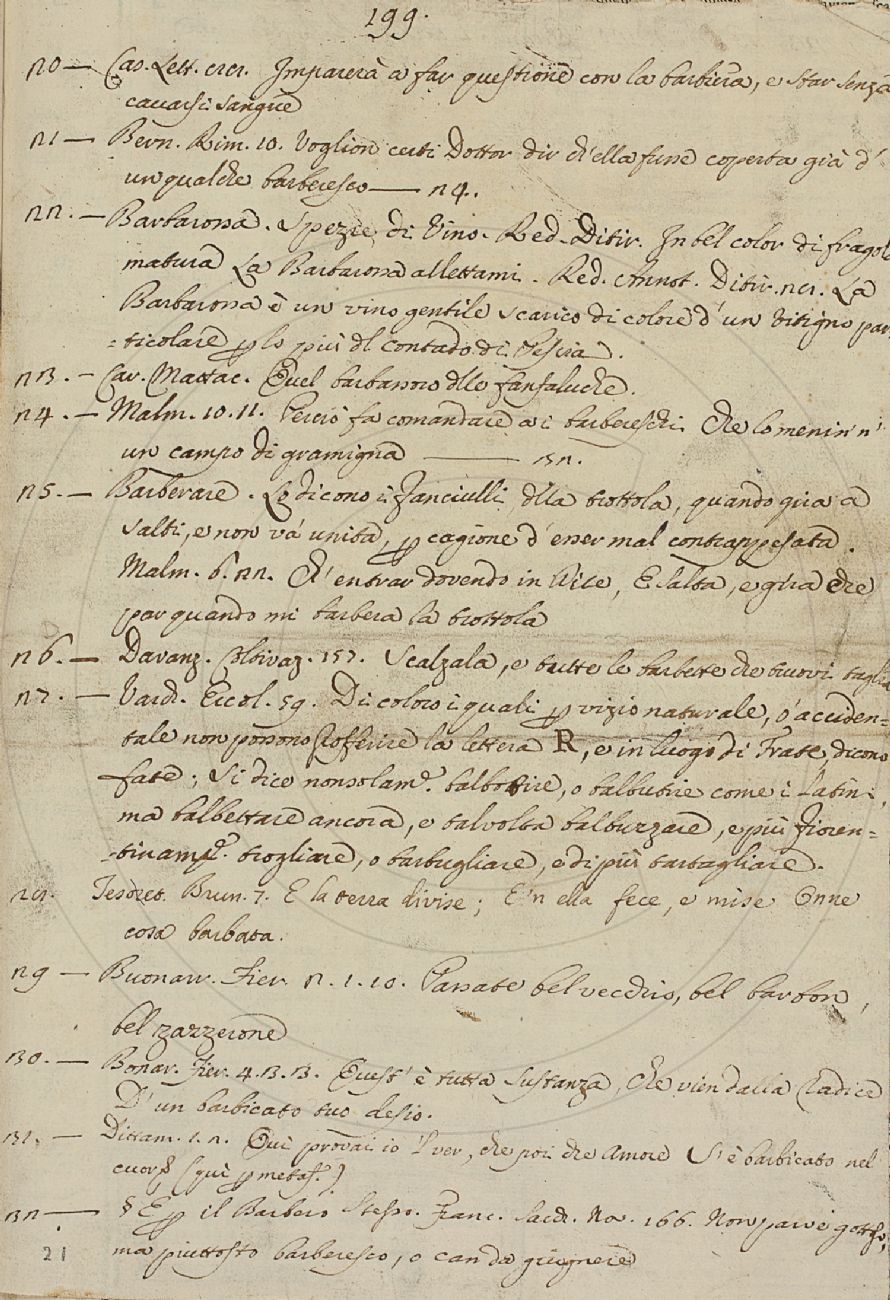 199.
20 — Cas. Lett. 81. Imparerà a far questione con la barbiera, e star senza
cavarsi sangue
21 — Bern. Rim. 10. Voglion certi Dottor dir ch'ella fusse coperta già d'
un qualche barberesco — 24.
22. — Barbarossa. Spezie di Vino. Red. Ditir. In bel color di fragola
matura La Barbarossa allettami. Red. Annot. Ditir. 28. La
Barbarossa è un vino gentile scarico di colore d'un vitigno par
=ticolare p lo più dl contado di Pescia.
23. — Car. Mattac. Quel barbassoro dlle fanfaluche.
24. — Malm. 10. 11. Perciò fa comandare a i barbereschi. Che lo menin 'n'
un campo di gramigna — 32.
25. — Barberare. Lo dicono i fanciulli dlla trottola, quando gira a
salti, e non và unita, p cagione d'esser mal contrappesata.
Malm. 6. 22. Ch'entrar dovendo in Dite, E salta, e gira che
par quando mi barbera la trottola
26. — Davanz. Coltivaz. 157. Scalzala, e tutte le barbette che truovi taglia
27. — Varch. Ercol. 59. Di coloro i quali p vizio naturale, o acciden=
tale non possono profferire la lettera R, e in luogo di Frate, dicono
fate; si dice nonsolam.e balbotire, o balbutire come i Latini,
ma balbettare ancora, e talvolta balbuzzare, e più fioren=
=tinam.e trogliare, o barbugliare, e di più tartagliare.
28. Tesoret. Brun. 7. E la terra divise; E 'n ella fece, e mise Onne
cosa barbata.
29 — Buonarr. Fier. 2. 1. 10. Passate bel vecchio, bel barbon,
bel zazzerone
30. — Bonar. Fier. 4. 3. 3. Quest' è tutta sustanza, che vien dalla Radice
D'un barbicato tuo desio.
31. — Dittam. 1. 2. Qui provai io 'l ver, che poi che Amore S'è barbicato nel
cuor (qui p metaf.)
32 — § E p il Barbero stesso. Franc. Sacch. Nov. 166. Non parve gottoso,
ma piuttosto barberesco, o can da giugnere
21